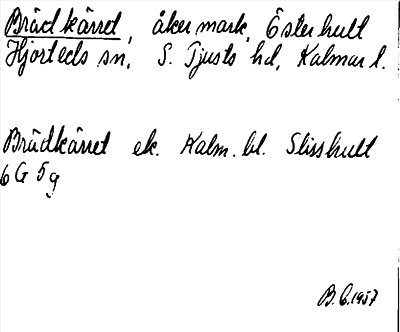 Brådkärret, åkermark, Österhult
Hjorteds sn, S. Tjusts hd, Kalmar l.
Brådkärret ek. Kalm. bl. Slisshult
6G 5g
B.G. 1957